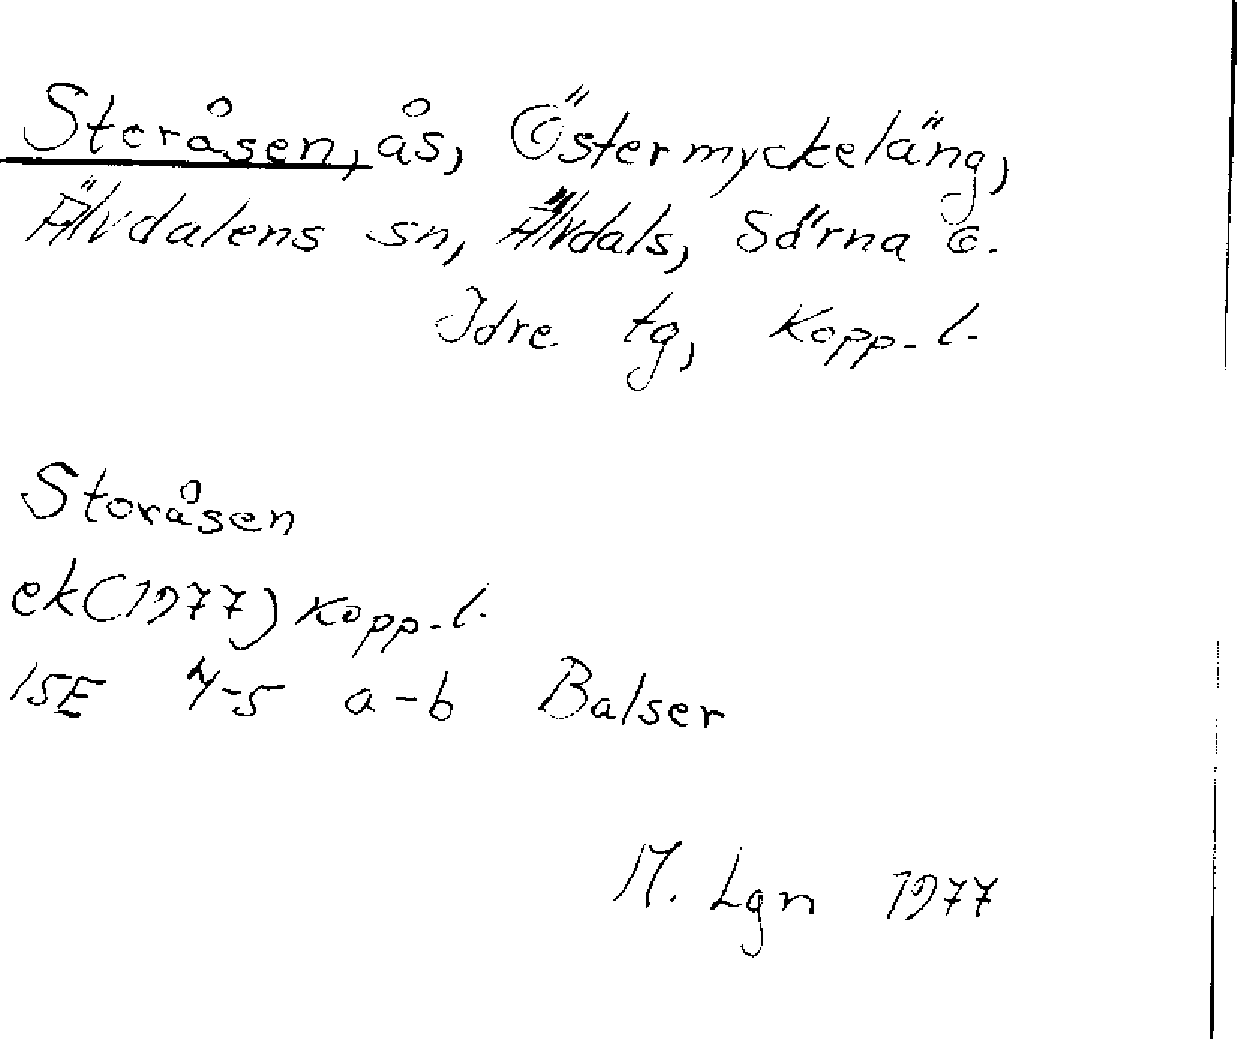 Storåsen, ås, Östermyckeläng,
Älvdalens sn, Älvdals, Särna o.
Idre tg, Kopp. l.
Storåsen
ek (1977) Kopp. l.
15E 4-5 a-b Balser
M. Lgn 1977